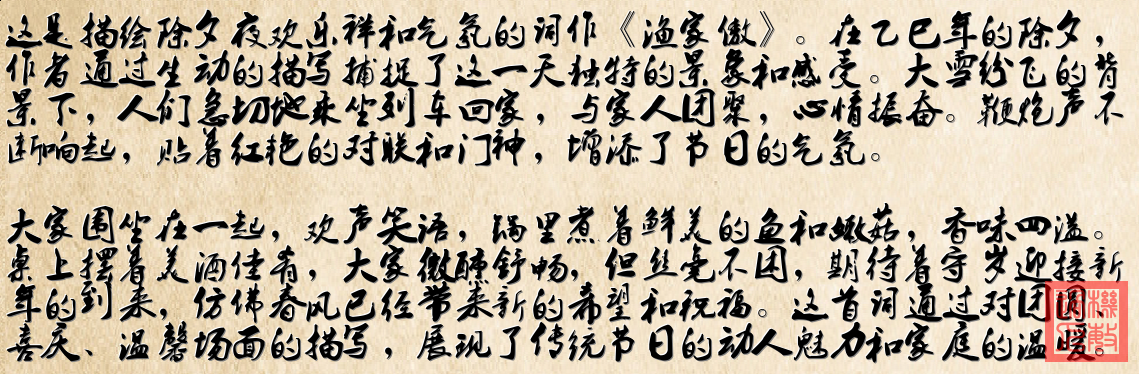 这是描绘除夕夜欢乐祥和气氛的词作《渔家傲》。在乙巳年的除夕，
作者通过生动的描写捕捉了这一天独特的景象和感受。大雪纷飞的背
景下，人们急切地乘坐列车回家，与家人团聚，心情振奋。鞭炮声不
断响起，贴着红艳的对联和门神，增添了节日的气氛。
大家围坐在一起，欢声笑语，锅里煮着鲜美的鱼和嫩菇，香味四溢。
桌上摆着美酒佳肴，大家微醺舒畅，但丝毫不困，期待着守岁迎接新
年的到来，仿佛春风已经带来新的希望和祝福。这首词通过对团圆、
喜庆、温馨场面的描写，展现了传统节日的动人魅力和家庭的温暖。